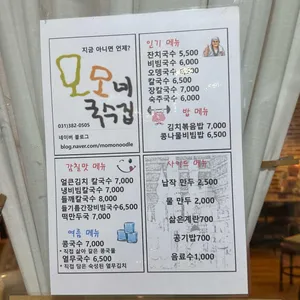 지금 아니면 언제?
모모네
국수집
(031)382-0505
네이버 블로그
blog.naver.com/momonoodle
인기 메뉴
잔치국수 5,500
비빔국수 6,000
오뎅국수 6,500
칼국수 6,500
장칼국수 7,000
숙주국수 6,000
밥 메뉴
김치볶음밥 7,000
콩나물비빔밥 6,500
감질맛 메뉴
얼큰김치 칼국수 7,000
냉비빔칼국수 7,000
들깨칼국수 8,000
들기름간장비빔국수6,500
떡만두국 7,000
여름 메뉴
콩국수 7,000
* 직접 삶아 갈은 콩국물
열무국수 6,500
* 직접 담은 숙성된 열무김치
사이드 메뉴
납작 만두 2,500
물 만두 2,000
삶은계란700
공기밥700
음료수1,000